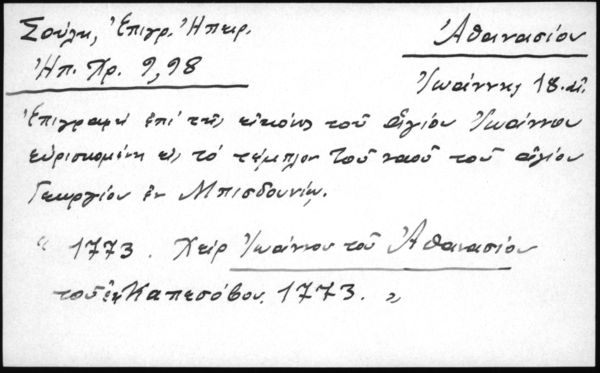 Σούλη, Ἐπιγρ. Ἠπειρ.
Ἀθανασίου
Ἠπ. Χρ. 9, 98
Ἰωάννης 18. αἰ.
Ἐπιγραφὴ ἐπὶ τῆς εἰκόνος τοῦ ἁγίου Ἰωάννου
εὑρισκομένη εἰς τὸ τέμπλον τοῦ ναοῦ τοῦ ἁγίου
Γεωργίου ἐν Μπισδουνίῳ.
" 1773. Χεὶρ Ἰωάννου τοῦ Ἀθανασίου
τοῦ ἐκ Καπεσόβου. 1773. "